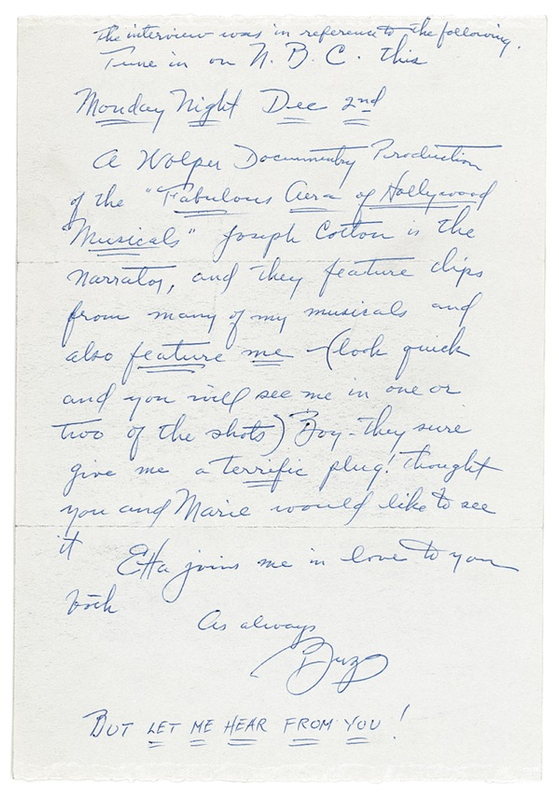 the interview was in reference to the following.
Tune in on N.B.C. this
Monday Night Dec 2nd
A Wolper Documentry Production
of the "Fabulous Aera of Hollywood
Musicals" Joseph Cotton is the
narrator, and they feature clips
from many of my musicals and
also feature me - (look quick
and you will see me in one or
two of the shots) Boy - they sure
give me a terrific plug! Thought
you and Marie would like to see
it
Etta joins me in love to you
both
As always
Buz
BUT LET ME HEAR FROM YOU!